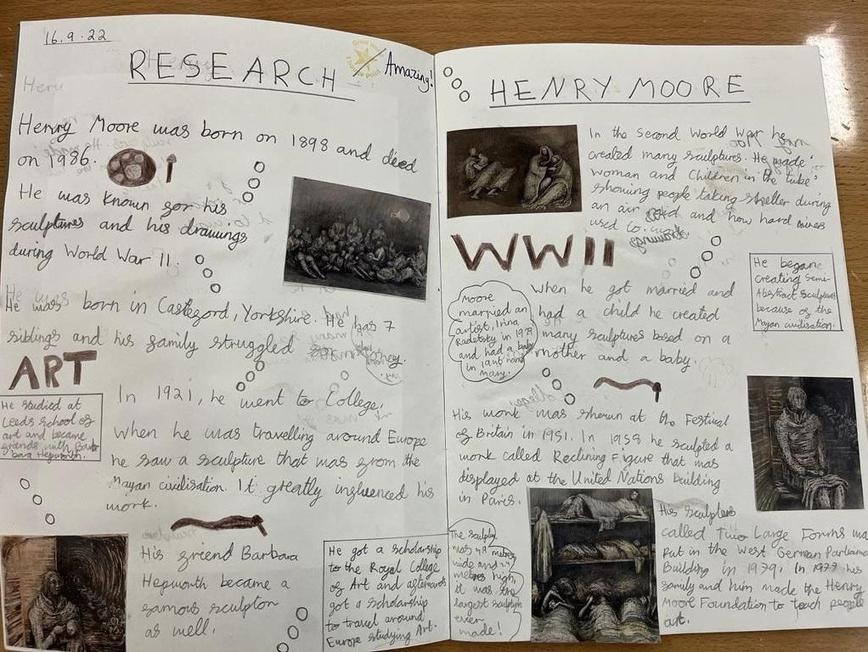 16.9.22
RESEARCH
Amazing!
Henry Moore was born on 1898 and died
on 1986.
He was known for his
sculptures and his drawings
during World War II.
He was born in Castleford, Yorkshire. He has 7
siblings and his family struggled
ART
He studied at
Leeds School of
art and became
friends with Bar
bara Hepworth.
In 1921, he went to College,
When he was travelling around Europe
he saw a sculpture that was from the
Mayan civilisation. It greatly influenced his
work.
His friend Barbara
Hepworth became a
famous sculptor
as well.
He got a scholarship
to the Royal College
of Art and afterwards
got a scholarship
to travel around
Europe studying Art.
HENRY MOORE
In the Second World War he
created many sculptures. He made
woman and Children in the tube
showing people taking shelter during
an air raid and how hard mines
used to
WWII
He began
creating Semi-
Abstract sculpture
because of the
Mayan civilisation.
Moore
married an
artist, Irina
Radetsky in 1929
and had a baby
in 1946 named
Mary.
When he got married and
had a child he created
many sculptures based on a
mother and a baby.
His work was shown at the Festival
of Britain in 1951. In 1958 he sculpted a
work called Reclining Figure that was
displayed at the United Nations building
in Paris.
The sculpture
was
wide and
metres high,
it was the
largest sculpture
ever
made!
His sculpture
called Two Large Forms was
Put in the West German Parliament
Building in 1979. In 1977 his
family and him made the Henry
Moore Foundation to teach people
art.